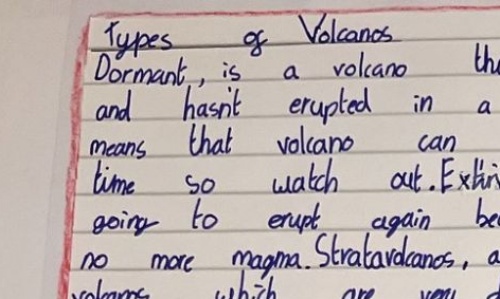 Types of Volcanos
Dormant, is a volcano
and hasn't erupted in a
means that volcano can
time so watch out.
going to erupt again
no more magma. Stratavolcanos,
volcanos which are very